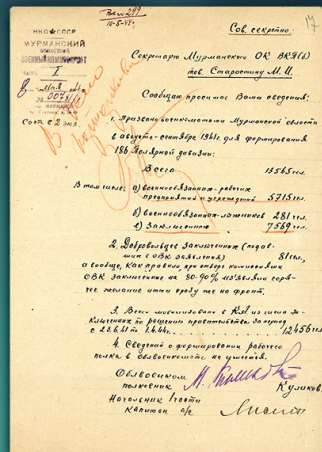 17
10-5-44г.
Сов. секретно.
НКО СССР
МУРМАНСКИЙ
ОБЛАСТНОЙ
ВОЕННЫЙ КОМИССАРИАТ
Часть I
8 мая
Секретарю Мурманского ОК ВКП(б)
тов. Старостину М.И.
Сообщаю просимые Вами сведения:
1. Призвано военкоматами Мурманской области
в августе-сентябре 1941г. для формирования
186 Полярной дивизии:
Всего 13565 чел.
В том числе: а) военнообязанных-рабочих
предприятий и учреждений 5715 чел.
б) военнообязанных- 281 чел.
в) Заключенных 7569 чел.
2. Добровольцев заключенных (подав-
ших в ОВК заявления) 81 чел.,
а вообще, как правило, при отборе комиссиями
ОВК заключенные на 80-90% изъявляли горя-
чее желание итти сразу же на фронт.
3. Всего мобилизовано в КА из числа за-
ключенных по решению правительства за период
с 22.6.41 по 1.4.44г. 12456 чел.
4. Сведений о формировании рабочего
полка в облвоенкомате не имеется.
Облвоенком
полковник Куликов.
Начальник 1 части
капитан а/с